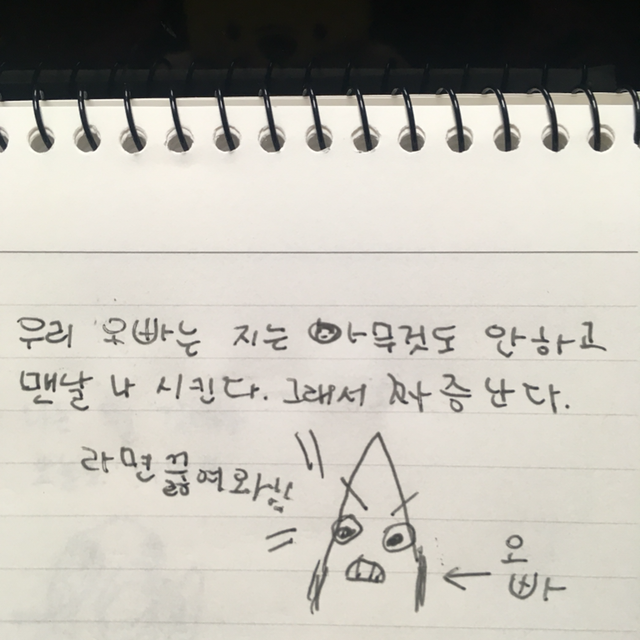 우리 오빠는 지는 아무것도 안하고
맨날 나 시킨다. 그래서 짜증난다.
라면끓여와
오
빠